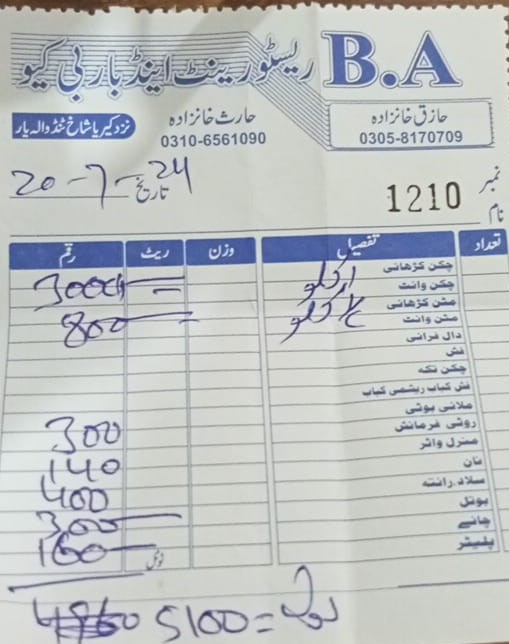 B.A ریسٹورینٹ اینڈ بار بی کیو
حاذق خانزادہ
0305-8170709
حارث خانزادہ
0310-6561090
نزد کیریا شاخ ٹنڈوالہ یار
نمبر 1210
تاریخ 20-7-24
نام
تعداد تفصیل وزن ریٹ رقم
چکن کڑھائی 1 کلو 3000
چکن وائٹ
مٹن کڑھائی کلو 800
مٹن وائٹ
دال فرائی
فش
چکن تکہ
فش کباب ریشمی کباب
ملائی بوٹی
روٹی فرمائش 300
منرل واٹر
نان 140
سلاد۔رائتہ 400
بوتل
چائے 300
پلیٹر 160
ٹوٹل
5100=